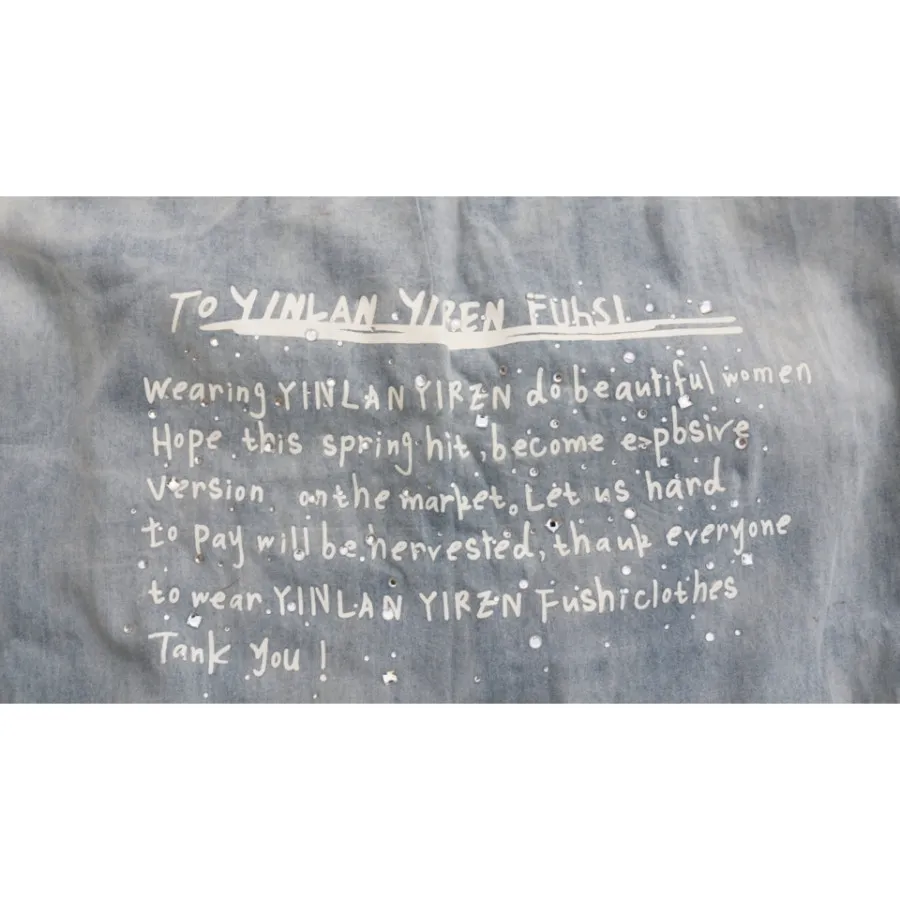 To YINLAN YIREN FUhSI
wearing YINLANYIREN do beautiful women
Hope this spring hit, become expbsive
version on the market. Let us hard
to pay will be hervested, thauk everyone
to wear YINLAN YIREN Fushiclothes
Tank you!